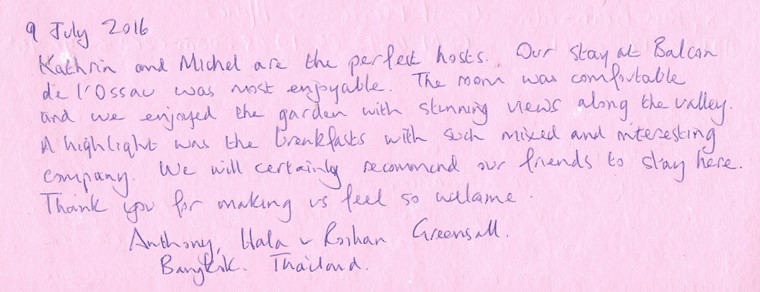 9 July 2016
Kathrin and Michel are the perfect hosts. Our stay at Balcon
de l'Ossau was most enjoyable. The room was comfortable
and we enjoyed the garden with stunning views along the valley.
A highlight was the breakfasts with such mixed and interesting
company. We will certainly recommend our friends to stay here.
Thank you for making us feel so welcome.
Anthony, Hala & Roshan
Bangkok. Thailand.